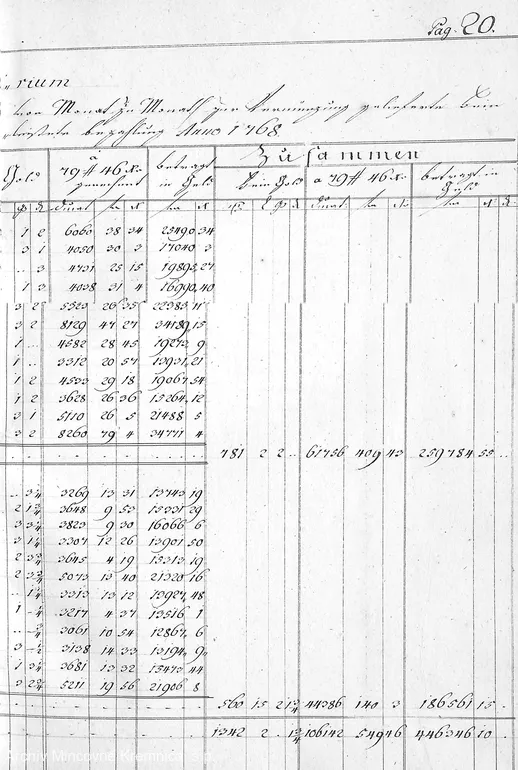 Pag. 20.
rium
von Monat zu Monath zur Vermünzung gelieferte Fein
bezahlung Anno 1768
Zusammen
Gold
à 79 # 46 Xr
gerechnet
betragt
in Geld
fein Gold
a 79 # 46 Xr
betragt in
Geld
1 2 6060 38 34 25490 34
3 1 4050 30 3 17040 3
.. 3 4731 25 15 19893 27
1 3 4038 31 4 16990 40
3 2 5523 26 35 22383 11
3 2 8129 47 27 34189 15
1 .. 4582 28 45 19273 9
3312 20 57 13931 21
1 2 4533 29 18 19067 54
1 2 3628 26 36 15264 12
3 1 5110 26 5 21488 5
3 2 8260 79 4 34771 4
781 2 2 .. 61756 409 43 259784 55 ..
.. 3269 13 31 13743 19
2 3648 9 53 15331 29
3 3823 9 30 16066 6
3 3307 12 26 13901 50
2 3645 4 19 15313 19
2 5073 13 40 21320 16
.. 3313 13 12 13927 48
1 3217 4 37 13516 1
.. 3061 10 54 12867 6
3 3138 14 33 13194 9
1 3681 13 32 15473 44
3 5211 19 56 21906 8
560 15 2 1¾ 44386 140 3 186561 15 ..
1342 2 .. 1¾ 106142 549 46 446346 10 ..
Archiv Mincovne Kremnica